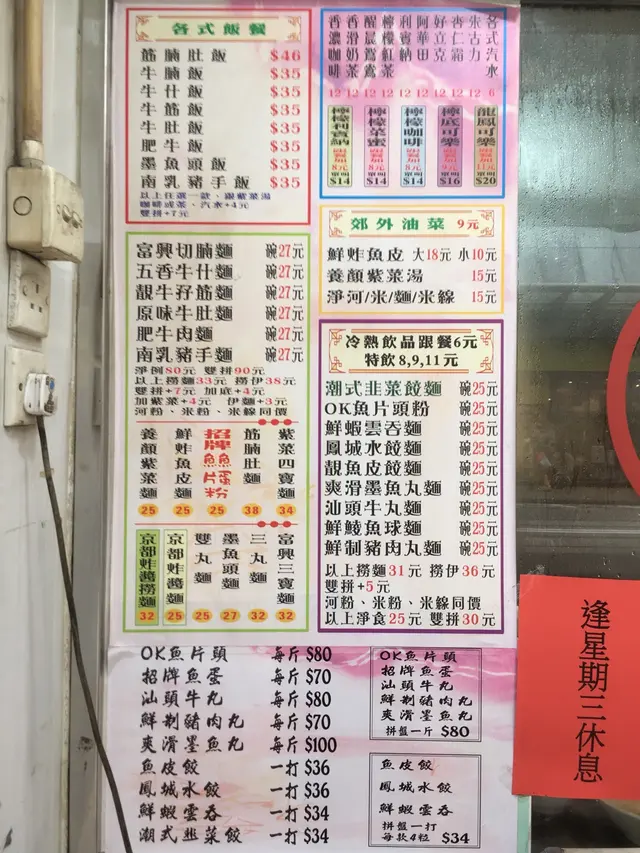 各式飯餐
筋腩肚飯 $46
牛腩飯 $35
牛什飯 $35
牛筋飯 $35
牛肚飯 $35
肥牛飯 $35
墨魚頭飯 $35
南乳豬手飯 $35
以上任選一款、跟紫菜湯
咖啡或茶、汽水+4元
雙拼+7元
香濃咖啡 12
香滑奶茶 12
醒晨鴛鴦 12
檸檬紅茶 12
利賓納 12
阿華田 12
好立克 12
杏仁霜 12
朱古力 12
各式汽水 6
檸檬利賓納 跟餐加8元 單叫$14
檸檬菜蜜 跟餐加8元 單叫$14
檸檬咖啡 跟餐加8元 單叫$14
檸底可樂 跟餐加9元 單叫$16
龍鳳可樂 跟餐加11元 單叫$20
郊外油菜 9元
鮮炸魚皮 大18元 小10元
養顏紫菜湯 15元
淨河/米/麵/米線 15元
富興切腩麵 碗27元
五香牛什麵 碗27元
靚牛孖筋麵 碗27元
原味牛肚麵 碗27元
肥牛肉麵 碗27元
南乳豬手麵 碗27元
淨例80元 雙拼90元
以上撈麵33元 撈伊38元
雙拼+7元 加底+4元
加紫菜+4元 伊麵+3元
河粉、米粉、米線同價
養顏紫菜麵 25
鮮炸魚皮麵 25
招牌魚片蛋粉 25
筋腩肚麵 38
紫菜四寶麵 34
京都炸醬撈麵 32
京都炸醬麵 25
雙丸麵 25
墨魚頭麵 27
三丸麵 32
富興三寶麵 32
冷熱飲品跟餐6元
特飲8,9,11元
潮式韭菜餃麵 碗25元
OK魚片頭粉 碗25元
鮮蝦雲吞麵 碗25元
鳳城水餃麵 碗25元
靚魚皮餃麵 碗25元
爽滑墨魚丸麵 碗25元
汕頭牛丸麵 碗25元
鮮鯪魚球麵 碗25元
鮮制豬肉丸麵 碗25元
以上撈麵31元 撈伊36元
雙拼+5元
河粉、米粉、米線同價
以上淨食25元 雙拼30元
OK魚片頭 每斤$80
招牌魚蛋 每斤$70
汕頭牛丸 每斤$80
鮮制豬肉丸 每斤$70
爽滑墨魚丸 每斤$100
魚皮餃 一打$36
鳳城水餃 一打$36
鮮蝦雲吞 一打$34
潮式韭菜餃 一打$34
OK魚片頭
招牌魚蛋
汕頭牛丸
鮮制豬肉丸
爽滑墨魚丸
拼盤一斤 $80
魚皮餃
鳳城水餃
鮮蝦雲吞
拼盤一打
每款4粒 $34
逢星期三休息